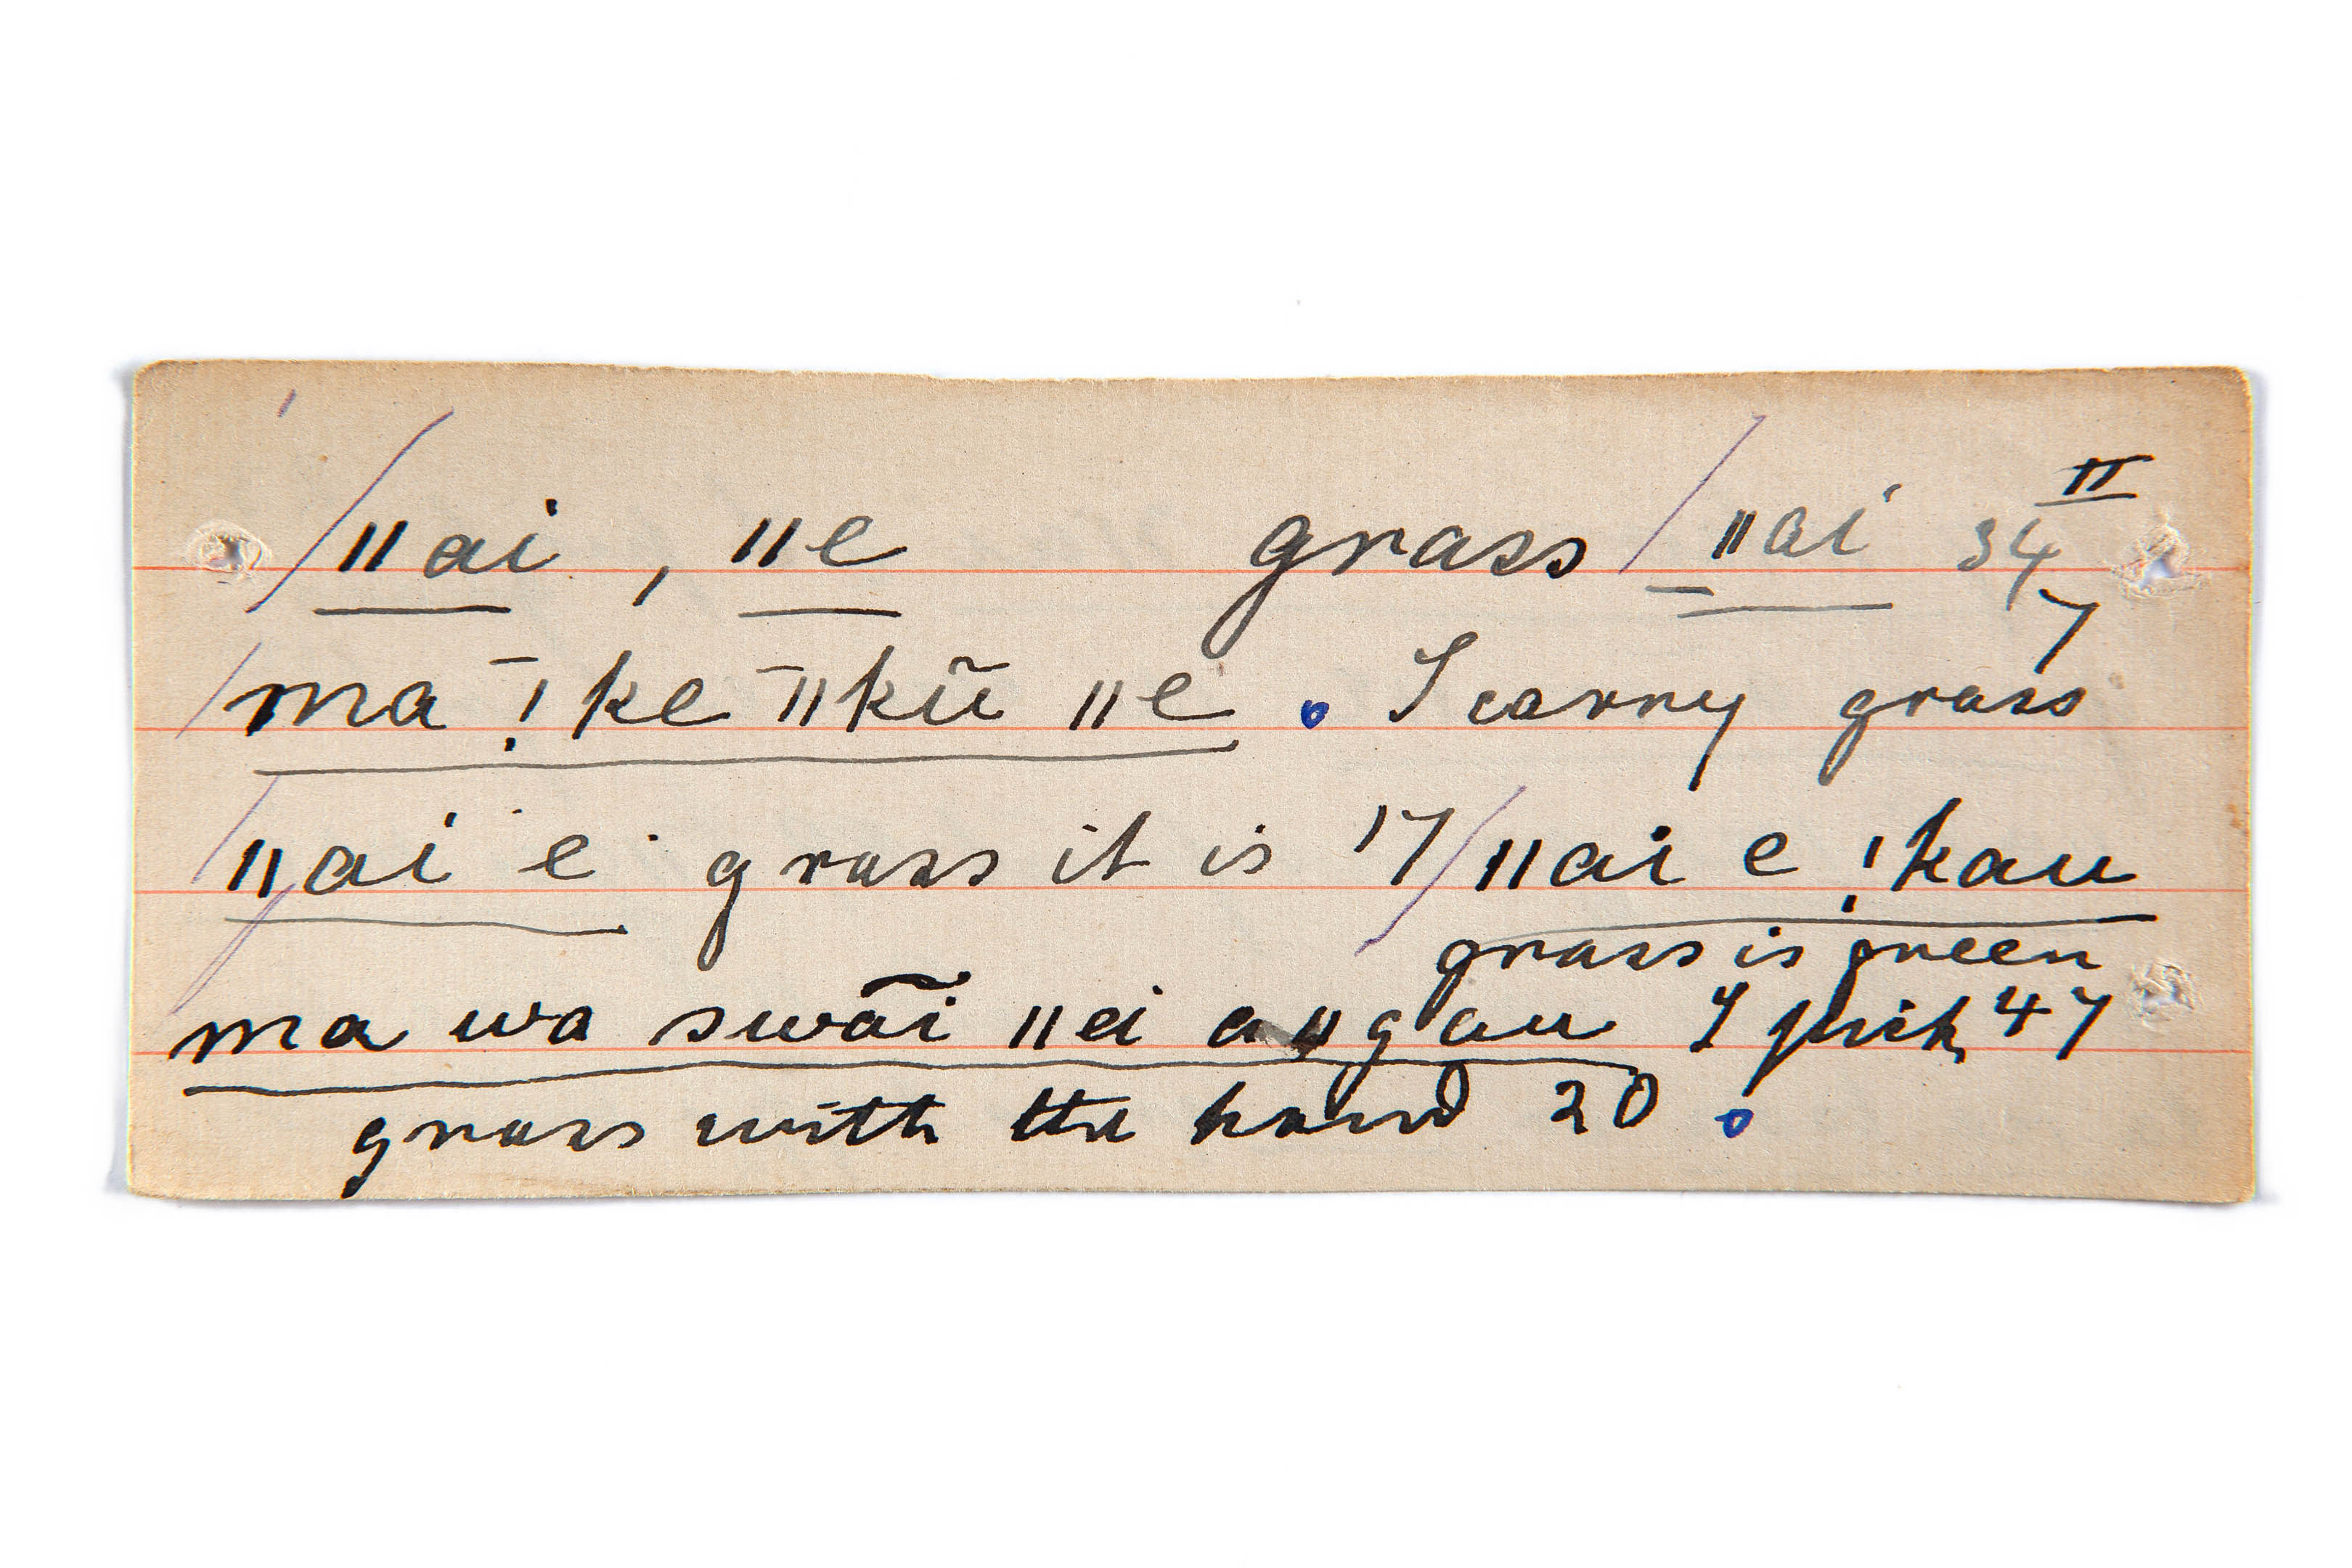 ǁai , ǁe grass ǁai 34 II
7
ma ǃke ǁkũ ǁe . I carry grass
ǁai e grass it is 17 ǁai e ǃkau
grass is green
ma wa swãi ǁei a ǁgau I pick 47
grass with the hand 20 .